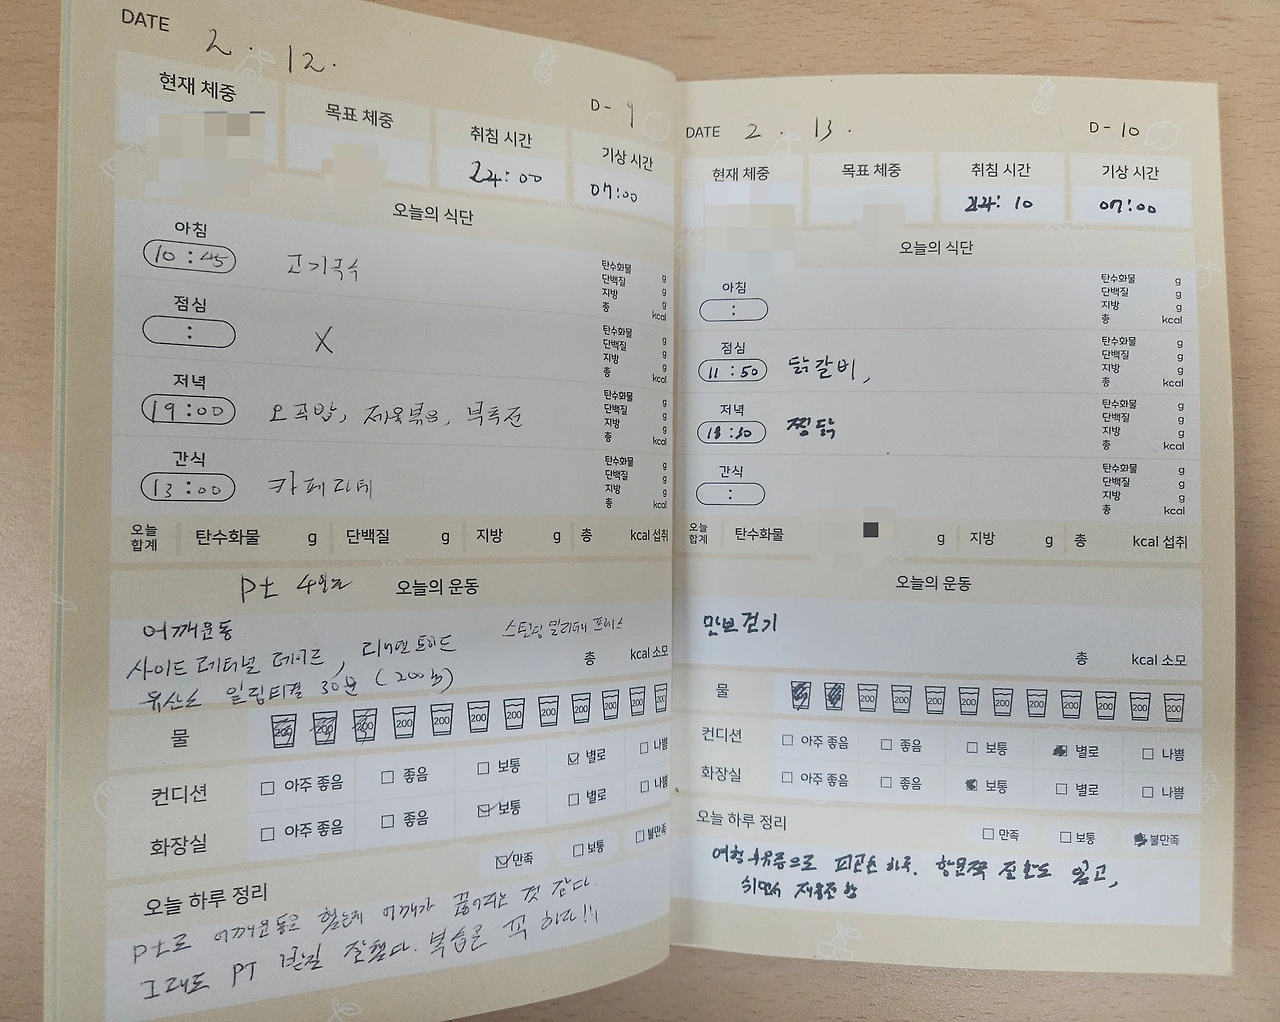 DATE 2 . 12 .
D- 9
현재 체중 목표 체중 취침 시간 기상 시간
24:00 07:00
오늘의 식단
아침
10:45 고기국수
탄수화물 g
단백질 g
지방 g
총 kcal
점심
: X
탄수화물 g
단백질 g
지방 g
총 kcal
저녁
19:00 오곡밥, 제육볶음, 부추전
탄수화물 g
단백질 g
지방 g
총 kcal
간식
13:00 카페라떼
탄수화물 g
단백질 g
지방 g
총 kcal
오늘 합계 탄수화물 g 단백질 g 지방 g 총 kcal 섭취
Pt 4일차 오늘의 운동
어깨운동
스탠딩 밀리터리 프레스
사이드 레터럴 레이즈,
총 kcal 소모
유산소 일립티컬 30분 (200
물 200 200 200 200 200 200 200 200 200 200 200
컨디션 아주 좋음 좋음 보통 별로 나쁨
화장실 아주 좋음 좋음 보통 별로 나쁨
만족 보통 불만족
오늘 하루 정리
Pt로 어깨운동은 힘든지 어깨가 끊어지는 것 같다.
그래도 PT 받길 잘했다. 복습은 꼭 하자!!
DATE 2 . 13 .
D- 10
현재 체중 목표 체중 취침 시간 기상 시간
24:10 07:00
오늘의 식단
아침
:
탄수화물 g
단백질 g
지방 g
총 kcal
점심
11:50 닭갈비,
탄수화물 g
단백질 g
지방 g
총 kcal
저녁
18:30 찜닭
탄수화물 g
단백질 g
지방 g
총 kcal
간식
:
탄수화물 g
단백질 g
지방 g
총 kcal
오늘 합계 탄수화물 g 지방 g 총 kcal 섭취
오늘의 운동
만보걷기
총 kcal 소모
물 200 200 200 200 200 200 200 200 200 200
컨디션 아주 좋음 좋음 보통 별로 나쁨
화장실 아주 좋음 좋음 보통 별로 나쁨
오늘 하루 정리
만족 보통 불만족
여행 후유증으로 피곤한 하루.
쉬면서